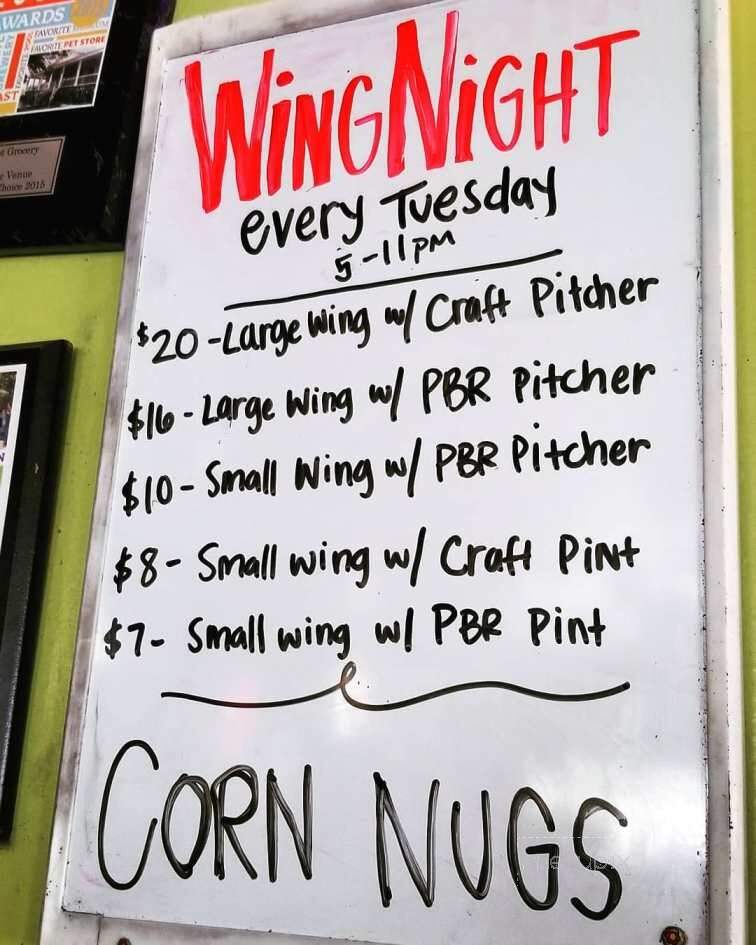 AWARDS
FAVORITE
FAVORITE PET STORE
Grocery
Venue
Choice 2015
WING NIGHT
every Tuesday
5-11pm
$20 - Large wing w/ Craft Pitcher
$16 - Large Wing w/ PBR Pitcher
$10 - Small Wing w/ PBR Pitcher
$8 - Small wing w/ Craft Pint
$7 - Small wing w/ PBR Pint
CORN NUGS